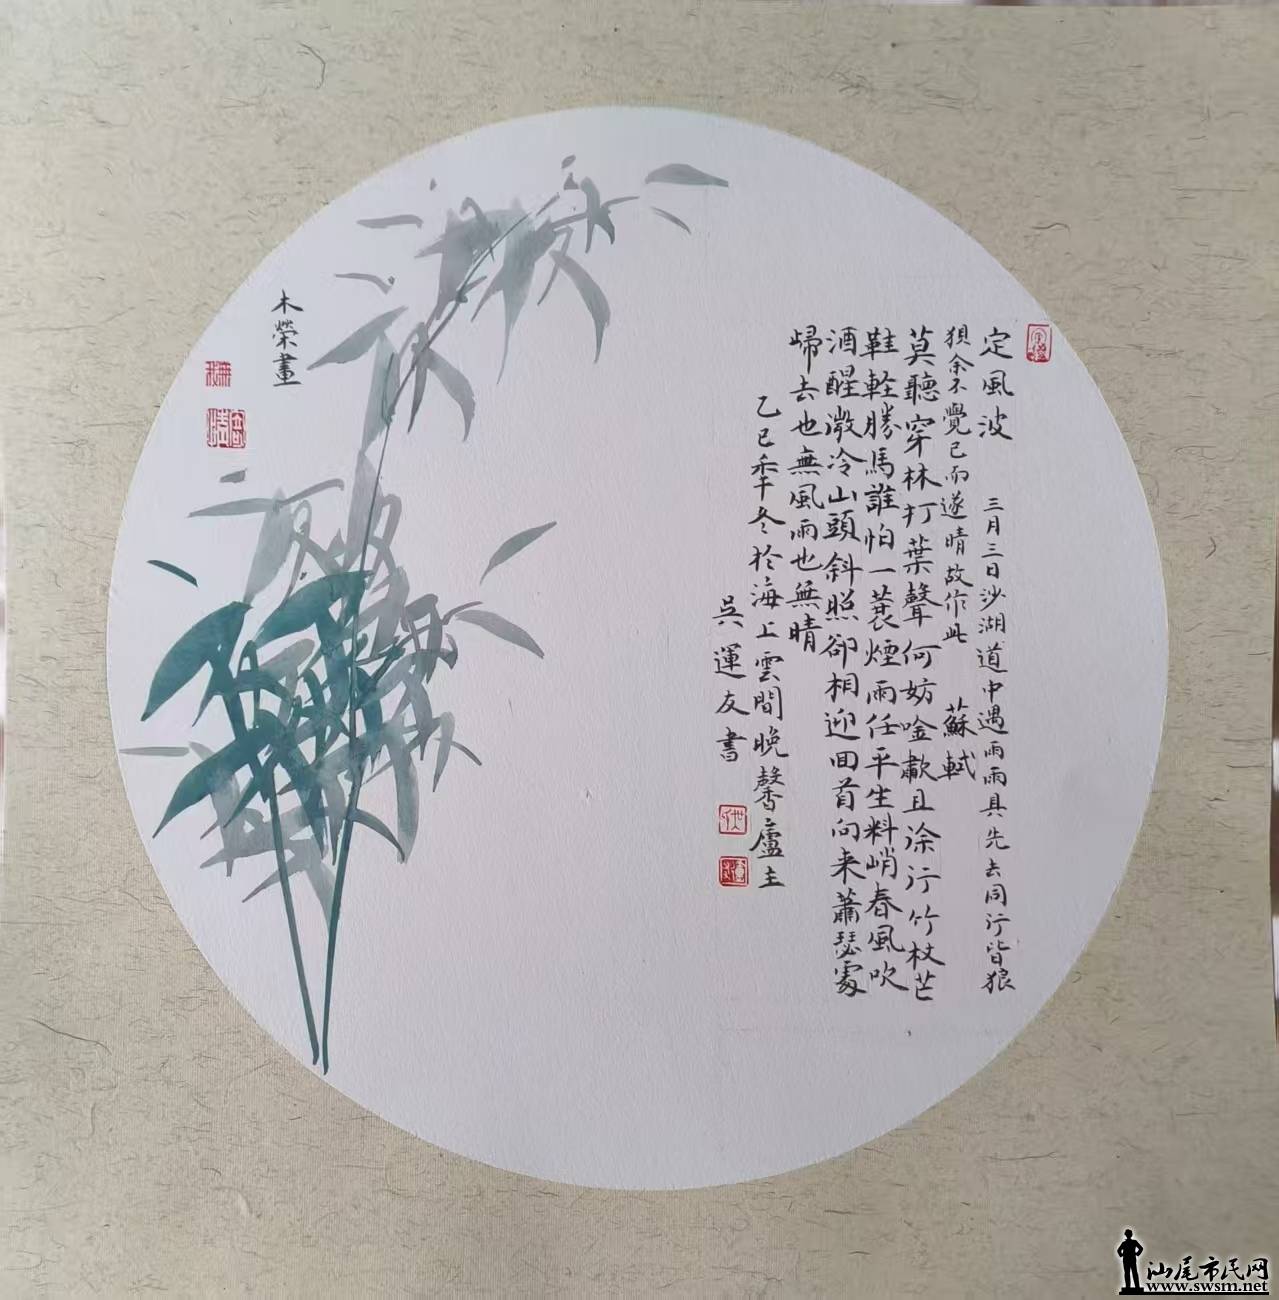 定風波 三月三日沙湖道中遇雨雨具先去同行皆狼
狽余不覺已而遂晴故作此 蘇軾
莫聽穿林打葉聲何妨唫歗且徐行竹杖芒
鞋輊勝馬誰怕一蓑煙雨任平生料峭春風吹
酒醒激冷山頭斜照卻相迎回首向来蕭瑟處
歸去也無風雨也無晴
乙巳秊冬於海上雲間晚馨廬主
吳運友書
木榮畫
汕尾市民网
www.swsm.net